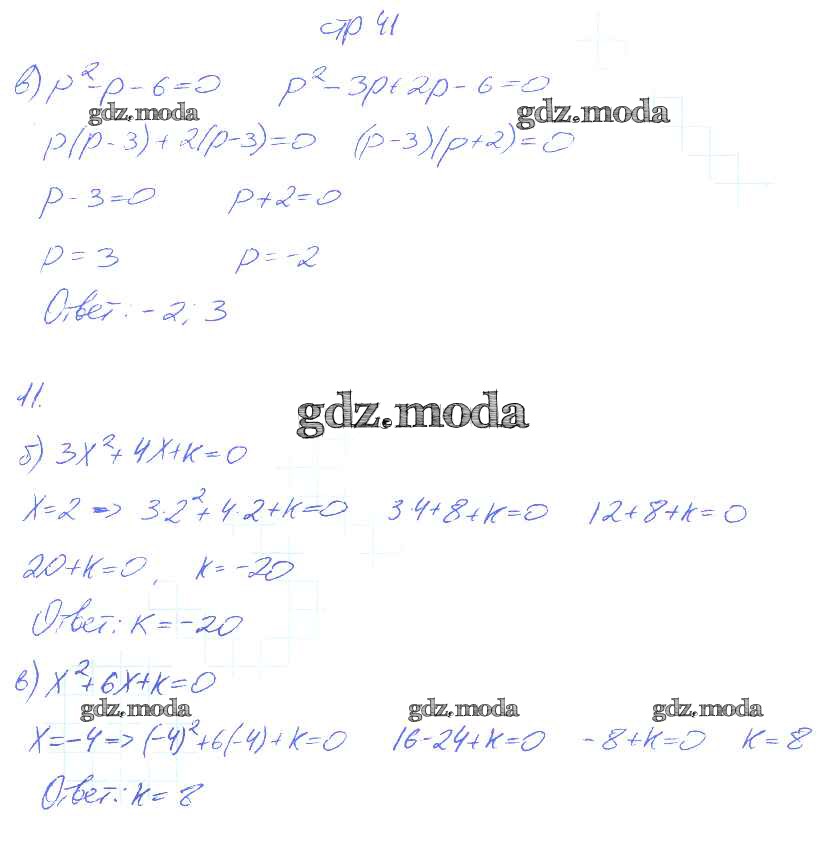 стр 41
в) p² - p - 6 = 0    p² - 3p + 2p - 6 = 0
gdz.moda    gdz.moda
p(p - 3) + 2(p - 3) = 0    (p - 3)(p + 2) = 0
p - 3 = 0    p + 2 = 0
p = 3    p = -2
Ответ: -2; 3
11.
gdz.moda
б) 3x² + 4x + k = 0
x = 2 => 3·2² + 4·2 + k = 0    3·4 + 8 + k = 0    12 + 8 + k = 0
20 + k = 0,    k = -20
Ответ: k = -20
в) x² + 6x + k = 0
gdz.moda    gdz.moda    gdz.moda
x = -4 => (-4)² + 6(-4) + k = 0    16 - 24 + k = 0    -8 + k = 0    k = 8
Ответ: k = 8